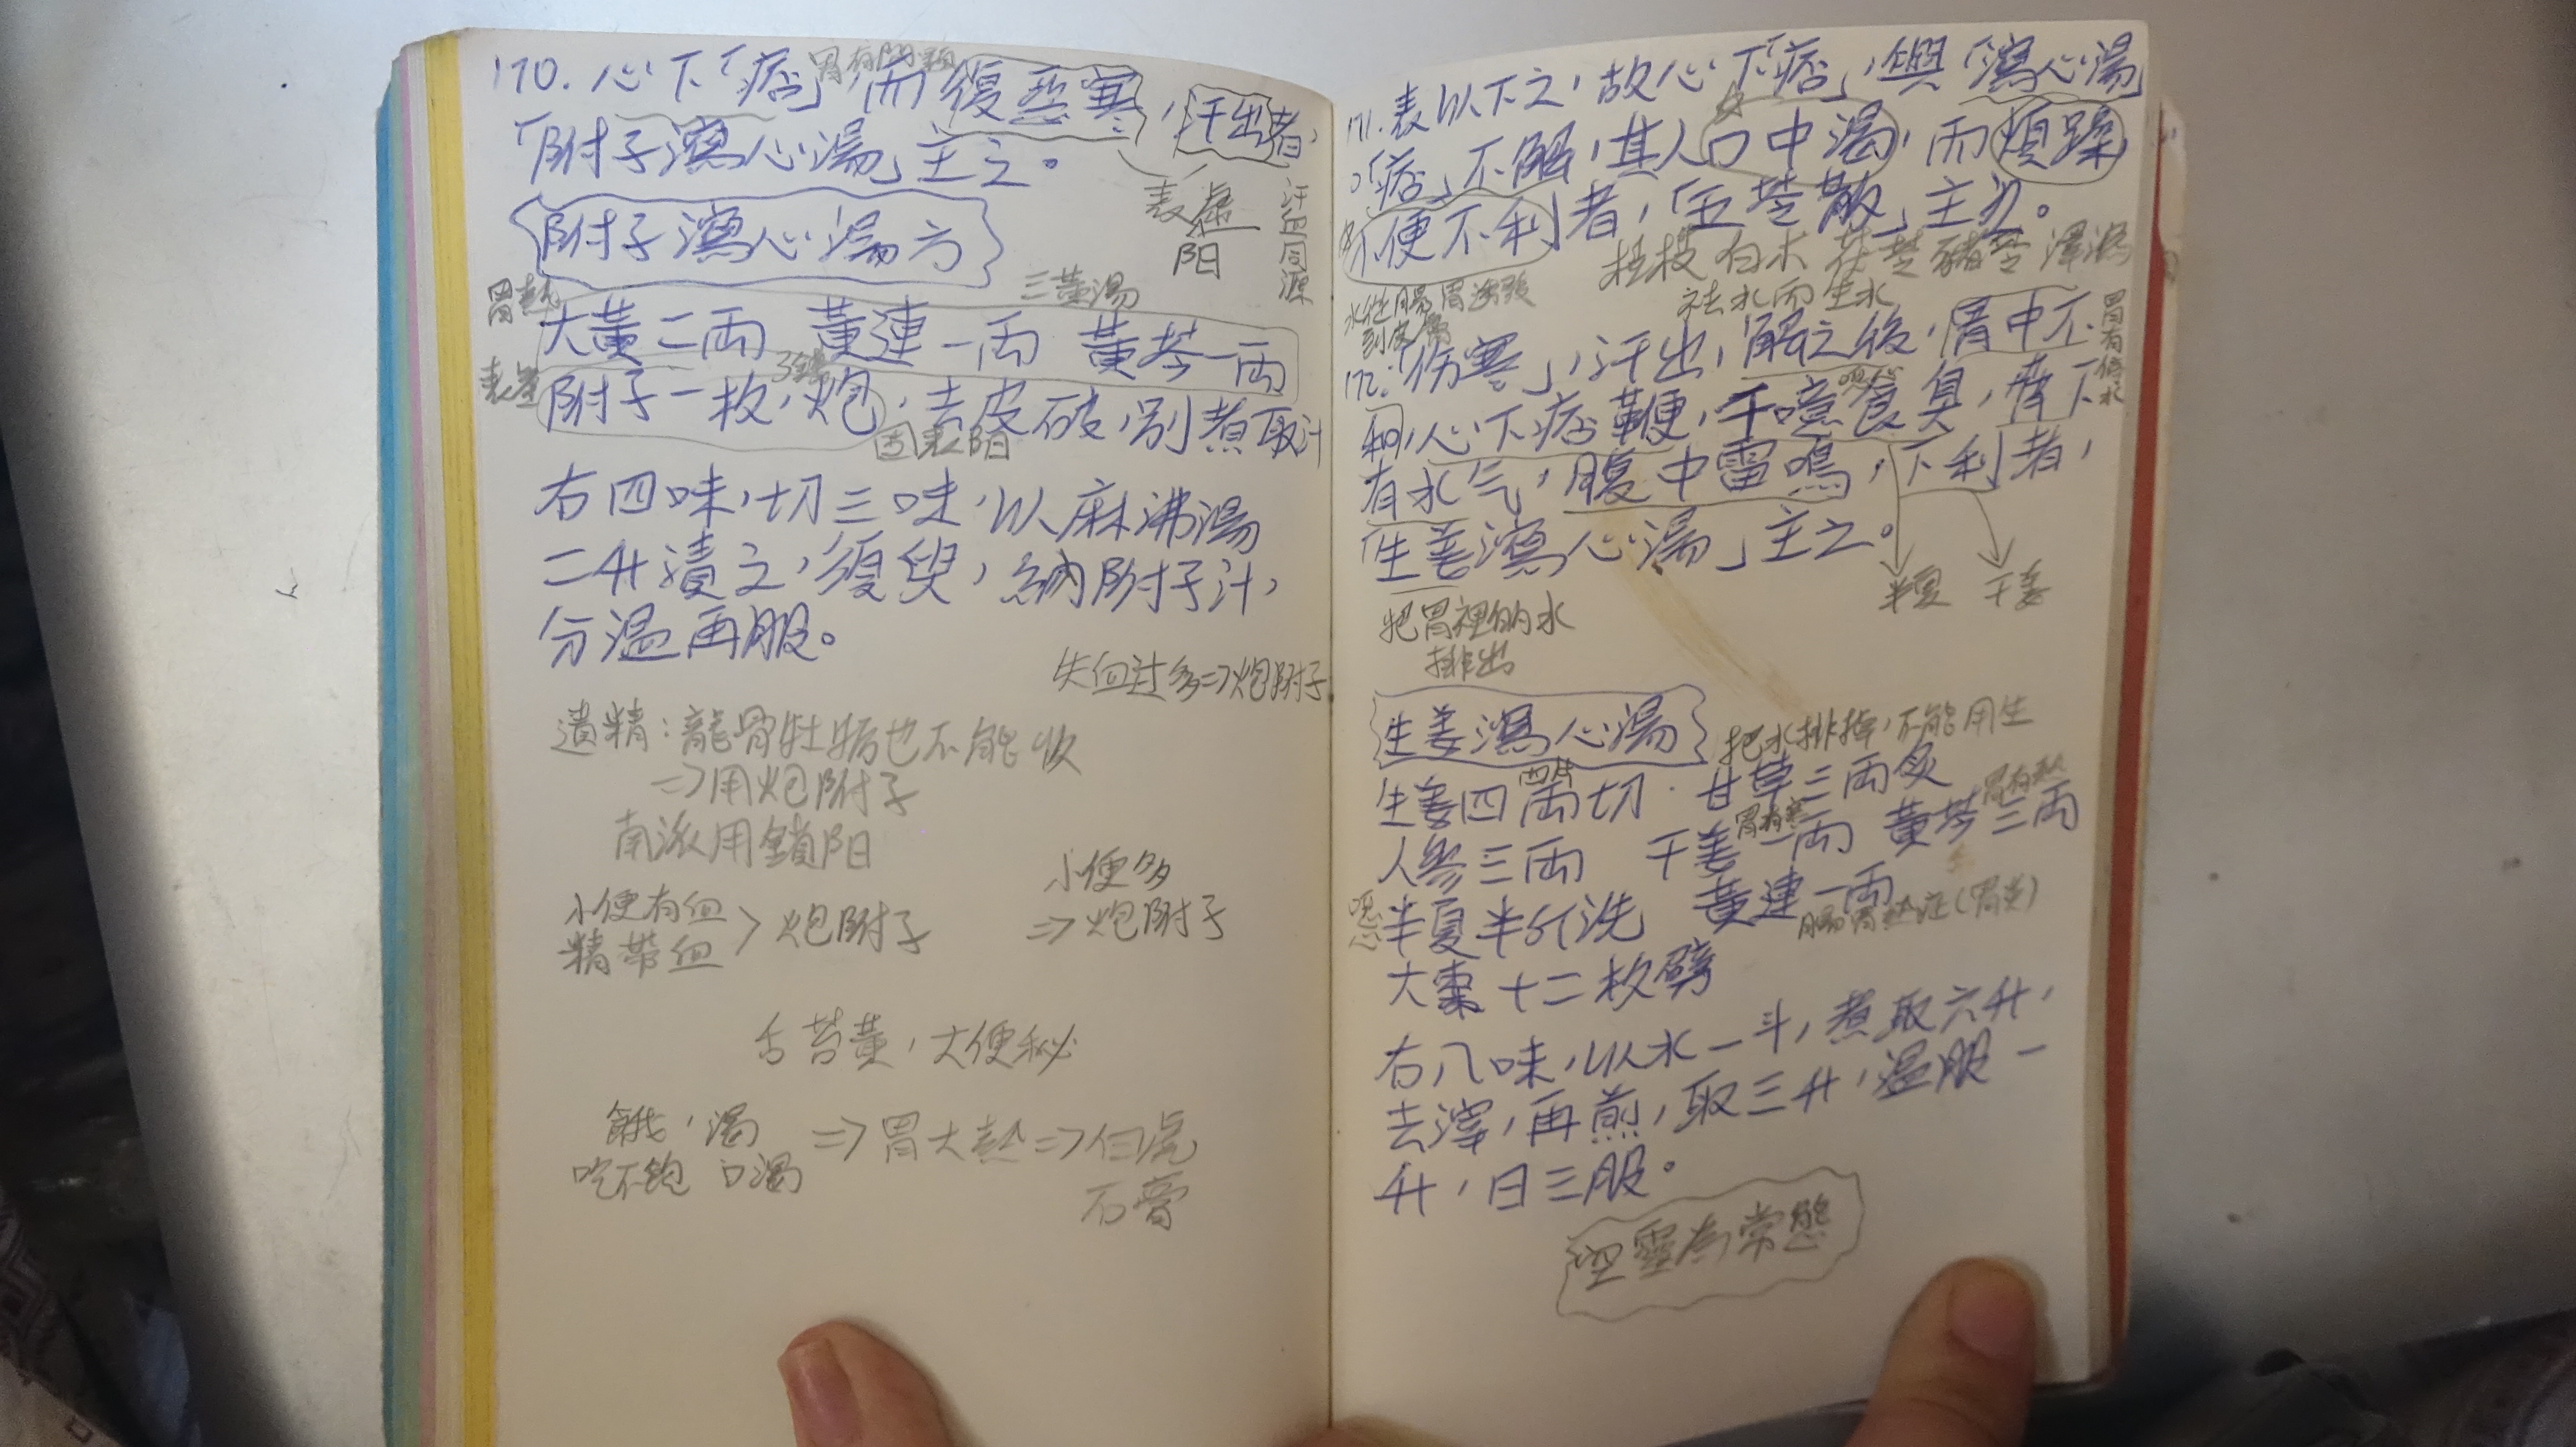 170. 心下「痞」,而復惡寒,汗出者,
胃有問題
「附子瀉心湯」主之。
表虛
阳
汗血同源
附子瀉心湯方
三黃湯
胃熱
大黃二兩 黃連一兩 黃芩一兩
3錢
表虛
附子一枚,炮,去皮破,別煮取汁
固表阳
右四味,切三味,以麻沸湯
二升漬之,須臾,納附子汁,
分溫再服。
失血过多=>炮附子
遺精:龍骨牡蠣也不能收
=>用炮附子
南派用鎖阳
小便有血
精帶血 > 炮附子
小便多
=>炮附子
舌苔黃,大便秘
餓,渴
吃不飽 口渴 =>胃大熱=>白虎
石膏
171.表以下之,故心下「痞」,與「瀉心湯」
。「痞」不解,其人口中渴,而煩躁,
小便不利者,「五苓散」主之。
桂枝 白朮 茯苓 豬苓 澤瀉
去水而生水
172.「伤寒」,汗出,解之後,胃中不
胃有停水
噁心
和,心下痞鞕,干噫食臭,脅下
有水气,腹中雷鳴,下利者,
「生姜瀉心湯」主之。
半夏 干姜
把胃裡的水
排出
生姜瀉心湯
把水排掉,不能用生
四片
生姜四兩切 . 甘草三兩炙
胃有寒
胃有熱
人參三兩 干姜一兩 黃芩三兩
噁心
半夏半斤洗 黃連一兩
腸胃熱症(胃炎)
大棗十二枚劈
右八味,以水一斗,煮取六升,
去滓,再煎,取三升,溫服一
升,日三服。
空靈為常態